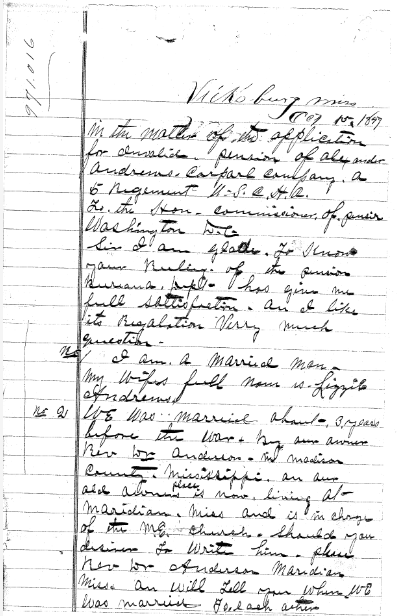 971016
Vicksburg miss
15, 1897
in the matter of, the application
for invalid. pension of alexander
Andrews. Corparl Company. a
5 Regement U-S. C. H. A.
To. the Hon- commissioner, of, pension
Washington D.C
Sir I am glade. To Know
your Ruling. of the pension
Bureaua, Dept- has give me
full sattisfaction. an I like
its Regalation Verry much
question-
No 1 I am. a married man-
my Wifes full name is. Lizzie
Andrews
No 2 WE Was married about, 3, years
before the War. by our owner
Rev Wm Anderson- in madison
County. Mississippi. on our
old owners place is now. living at
Maridian. Miss and is in charge
of the M.E. Church. Should you
desire To Write him. please
Rev Wm Anderson Maridian
Miss. an Will Tell you When WE
Was married To. each other